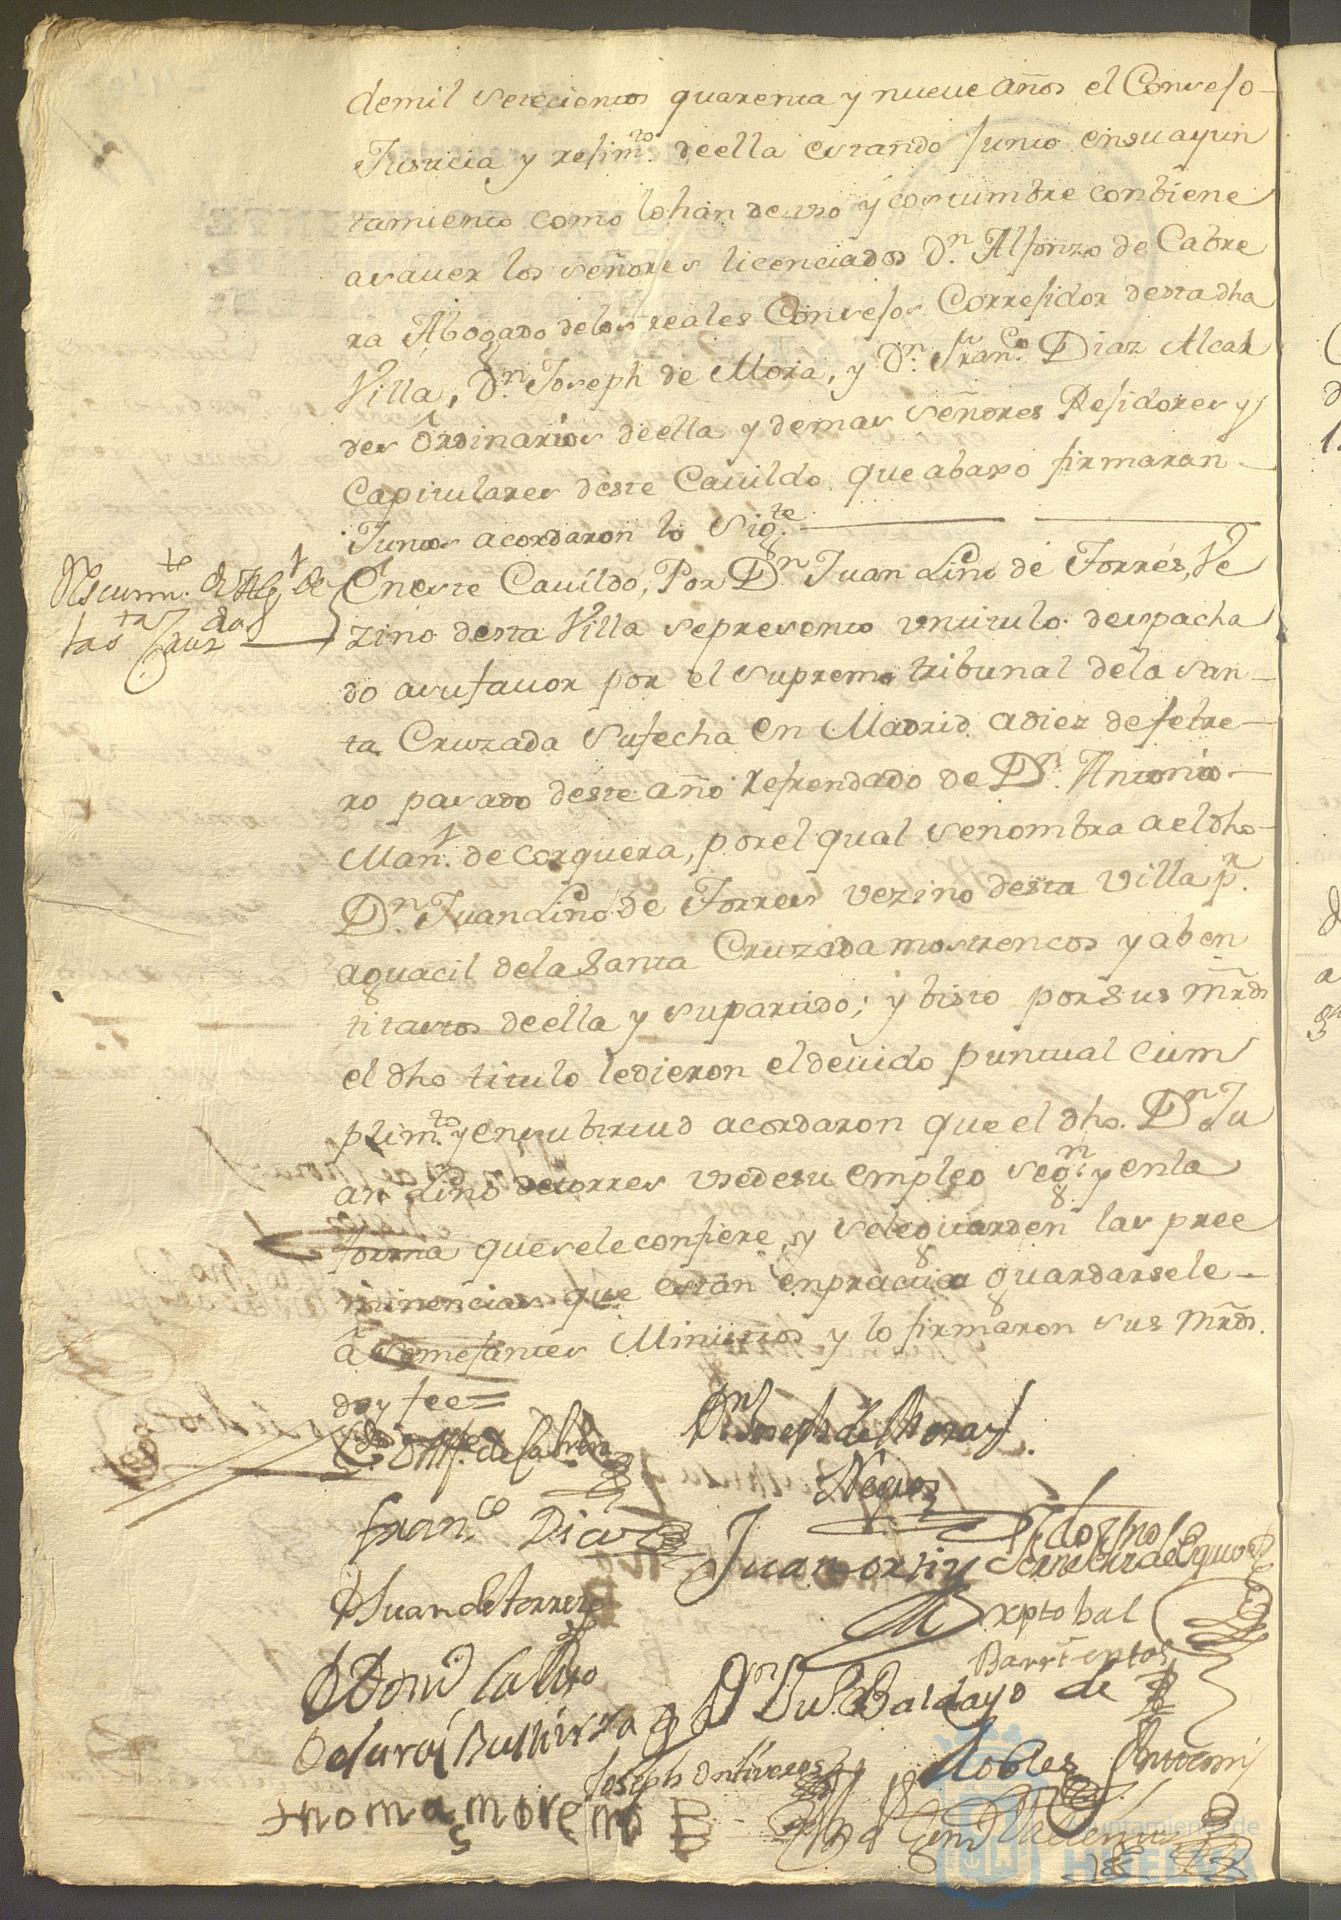 demil setecientos quarenta y nueve años el Consejo
Justicia y rejimto. deella estando Junto ensuayun
tamiento como lohan de uso y costumbre conbiene
asauer los señores licenciados Dn. Alfonzo de Cabre
ra Abogado delos reales Consejos Correjidor desta dha
Villa, Dn. Joseph de Mora, y Dn. Franco. Diaz Alcal
des Ordinarios deella y demas señores Rejidores y
Capitulares deste Cauildo que abaxo firmaran
Juntos acordaron lo sigte.
Eneste Cauildo, Por Dn. Juan Lino de Torres, Ve
zino desta Villa sepresento untitulo despacha
do asufauor por el supremo tribunal dela san
ta Cruzada sufecha en Madrid adiez defebre
ro pasado deste año Refrendado de Dn. Antonio
Manl. de corquera, porel qual senombra aeldho
Dn. Juan Lino de Torres vezino desta Villa pr.
aguacil dela Santa Cruzada mostrencos y aben
titastos deella y supartido; y bisto porsus mrds
el dho titulo ledieron eldeuido puntual cum
plimto. y ensubirtud acordaron que el dho. Dn. Ju
an Lino detorres usedesu empleo segn. y enla
forma queseleconfiere, y seleguarden las pree
minencias que estan enpractica guardarsele
a semejantes Ministros y lo firmaron sus mrds.
doy fee=
de Cabrera
Dn. Joseph de Mora y
Negros
Franco. Diaz
Juan ortiz
Juan de torres
xptobal
Barrientos
Baldayo de
Robles
Joseph Ontiveros
thomas moreno
Ayuntamiento de
HUELVA